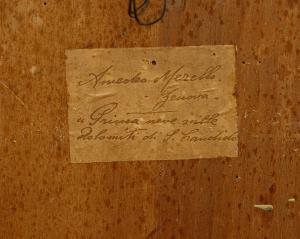 Amedeo Merello.
Genova -
"Prima neve sulle
Dolomiti di S. Candido